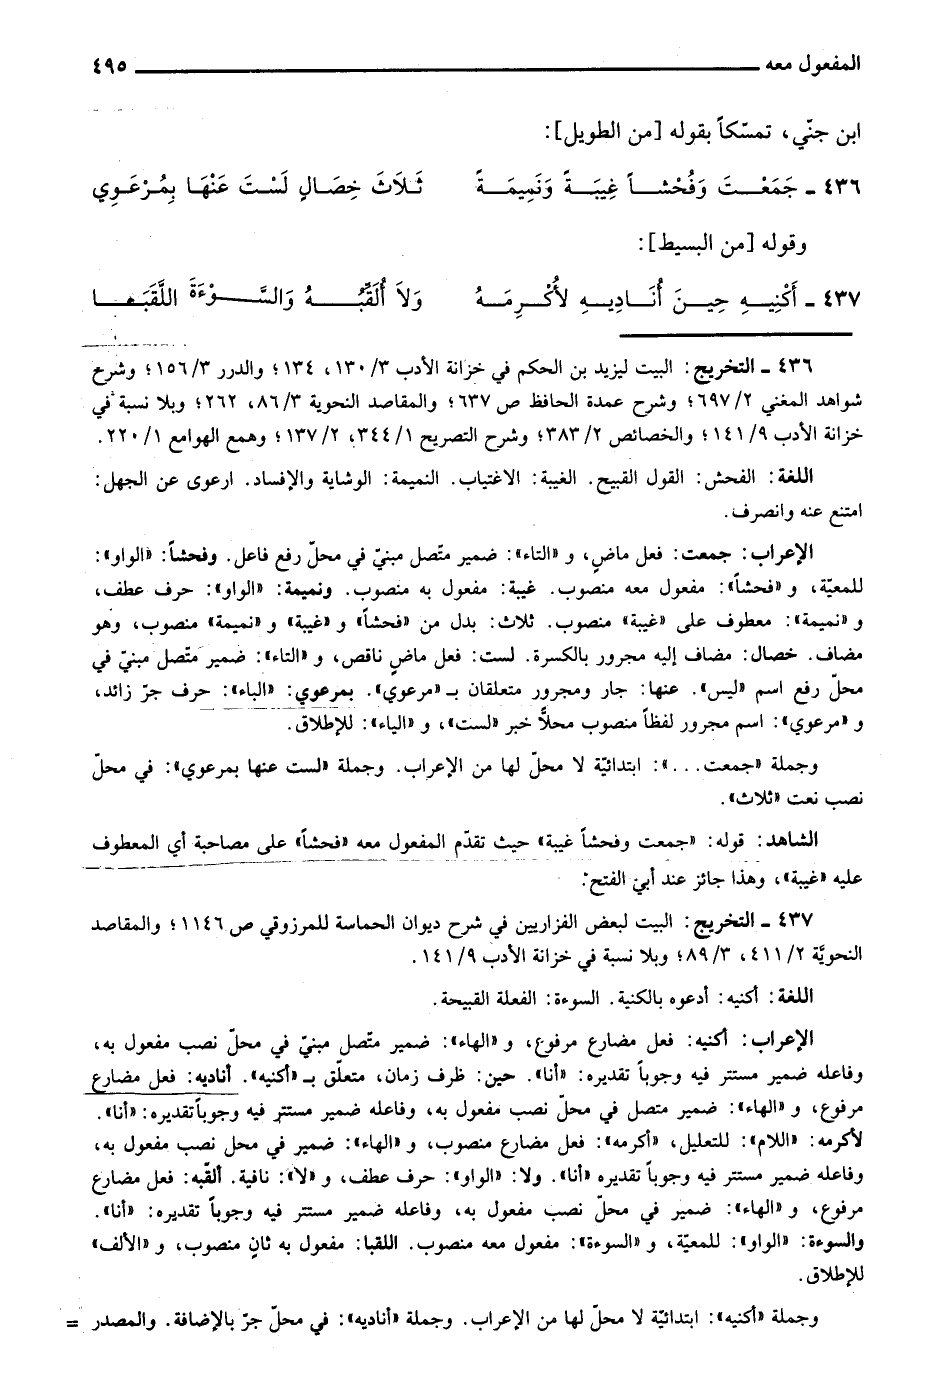 المفعول معه ٤٩٥
ابن جنّي، تمسّكاً بقوله [من الطويل]:
٤٣٦ ـ جَمَعْتَ وَفُحْشاً غِيبَةً وَنَمِيمَةً ثَلاَثَ خِصَالٍ لَسْتَ عَنْهَا بِمُرْعَوِي
وقوله [من البسيط]:
٤٣٧ ـ أَكْنِيهِ حِينَ أُنَادِيهِ لأُكْرِمَهُ وَلاَ أُلَقِّبُهُ وَالسَّوْءَةَ اللَّقَبَا
٤٣٦ ـ التخريج: البيت ليزيد بن الحكم في خزانة الأدب ٣/ ١٣٠، ١٣٤؛ والدرر ٣/ ١٥٦؛ وشرح
شواهد المغني ٢/ ٦٩٧؛ وشرح عمدة الحافظ ص ٦٣٧؛ والمقاصد النحوية ٣/ ٨٦، ٢٦٢؛ وبلا نسبة في
خزانة الأدب ٩/ ١٤١؛ والخصائص ٢/ ٣٨٣؛ وشرح التصريح ١/ ٣٤٤، ٢/ ١٣٧؛ وهمع الهوامع ١/ ٢٢٠.
اللغة: الفحش: القول القبيح. الغيبة: الاغتياب. النميمة: الوشاية والإفساد. ارعوى عن الجهل:
امتنع عنه وانصرف.
الإعراب: جمعت: فعل ماضٍ، و «التاء»: ضمير متّصل مبنيّ في محلّ رفع فاعل. وفحشاً: «الواو»:
للمعيّة، و «فحشاً»: مفعول معه منصوب. غيبة: مفعول به منصوب. ونميمة: «الواو»: حرف عطف،
و «نميمة»: معطوف على «غيبة» منصوب. ثلاث: بدل من «فحشاً» و «غيبة» و «نميمة» منصوب، وهو
مضاف. خصال: مضاف إليه مجرور بالكسرة. لست: فعل ماضٍ ناقص، و «التاء»: ضمير متّصل مبنيّ في
محلّ رفع اسم «ليس». عنها: جار ومجرور متعلقان بـ «مرعوي». بمرعوي: «الباء»: حرف جرّ زائد،
و «مرعوي»: اسم مجرور لفظاً منصوب محلاًّ خبر «لست»، و «الياء»: للإطلاق.
وجملة «جمعت...»: ابتدائيّة لا محلّ لها من الإعراب. وجملة «لست عنها بمرعوي»: في محلّ
نصب نعت «ثلاث».
الشاهد: قوله: «جمعت وفحشاً غيبة» حيث تقدّم المفعول معه «فحشاً» على مصاحبة أي المعطوف
عليه «غيبة»، وهذا جائز عند أبي الفتح.
٤٣٧ ـ التخريج: البيت لبعض الفزاريين في شرح ديوان الحماسة للمرزوقي ص ١١٤٦؛ والمقاصد
النحويَّة ٢/ ٤١١، ٣/ ٨٩؛ وبلا نسبة في خزانة الأدب ٩/ ١٤١.
اللغة: أكنيه: أدعوه بالكنية. السوءة: الفعلة القبيحة.
الإعراب: أكنيه: فعل مضارع مرفوع، و «الهاء»: ضمير متّصل مبنيّ في محلّ نصب مفعول به،
وفاعله ضمير مستتر فيه وجوباً تقديره: «أنا». حين: ظرف زمان، متعلّق بـ «أكنيه». أناديه: فعل مضارع
مرفوع، و «الهاء»: ضمير متصل في محلّ نصب مفعول به، وفاعله ضمير مستتر فيه وجوباً تقديره: «أنا».
لأكرمه: «اللام»: للتعليل، «أكرمه»: فعل مضارع منصوب، و «الهاء»: ضمير في محل نصب مفعول به،
وفاعله ضمير مستتر فيه وجوباً تقديره «أنا». ولا: «الواو»: حرف عطف، و «لا»: نافية. ألقّبه: فعل مضارع
مرفوع، و «الهاء»: ضمير في محلّ نصب مفعول به، وفاعله ضمير مستتر فيه وجوباً تقديره: «أنا».
والسوءة: «الواو»: للمعيّة، و «السوءة»: مفعول معه منصوب. اللقبا: مفعول به ثانٍ منصوب، و «الألف»
للإطلاق.
وجملة «أكنيه»: ابتدائيّة لا محلّ لها من الإعراب. وجملة «أناديه»: في محلّ جرّ بالإضافة. والمصدر =